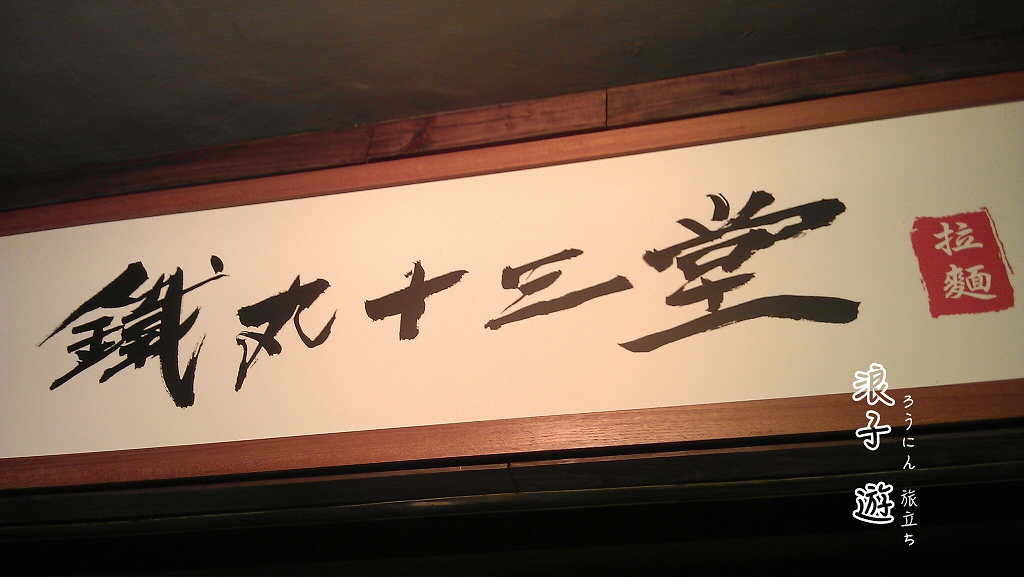 鐵丸十三堂
拉
麵
浪子 遊
ろうにん 旅立ち